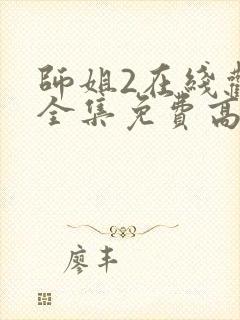 師姐2在綫觀
全集免費高
廖丰